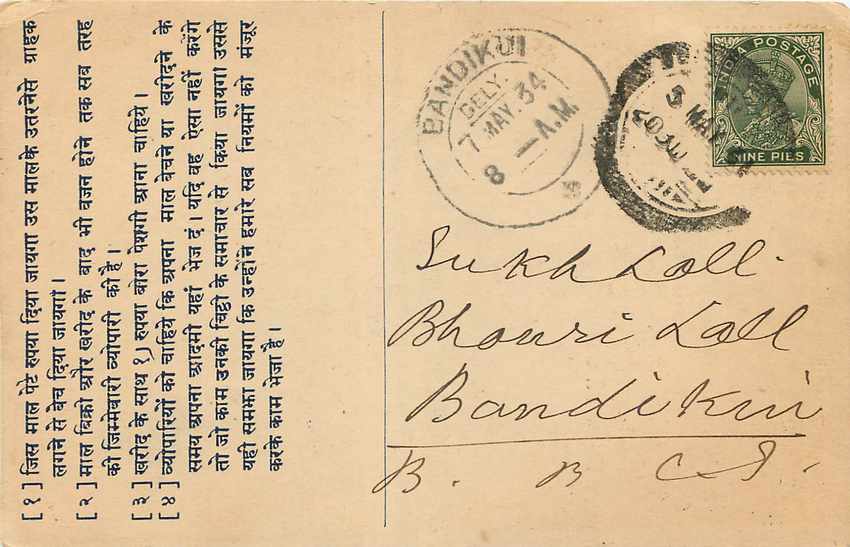 [ १ ] जिस माल पेटे रुपया दिया जायगा उस मालके उतरनेसे ग्राहक
लगने से बेच दिया जायगा ।
[ २ ] माल बिक्री और खरीद के बाद भी वजन होने तक सब तरह
की जिम्मेबारी व्योपारी की है ।
[ ३ ] खरीद के साथ १) रुपया बोरा पेशगी आना चाहिये ।
[ ४ ] व्योपारियों को चाहिये कि अपना माल बेचने या खरीदने के
समय अपना आदमी यहां भेज दं । यदि वह ऐसा नहीं करेंगे
तो जो काम उनकी चिट्ठी के समाचार से किया जायगा उससे
यही समझा जायगा कि उन्होंने हमारे सब नियमों को मंजूर
करके काम भेजा है ।
BANDIKUI
DELY.
7 MAY. 34
8 — A.M.
INDIA POSTAGE
NINE PIES
5 MAY
Sukh Lall
Bhouri Lall
Bandikui
B. B C I.